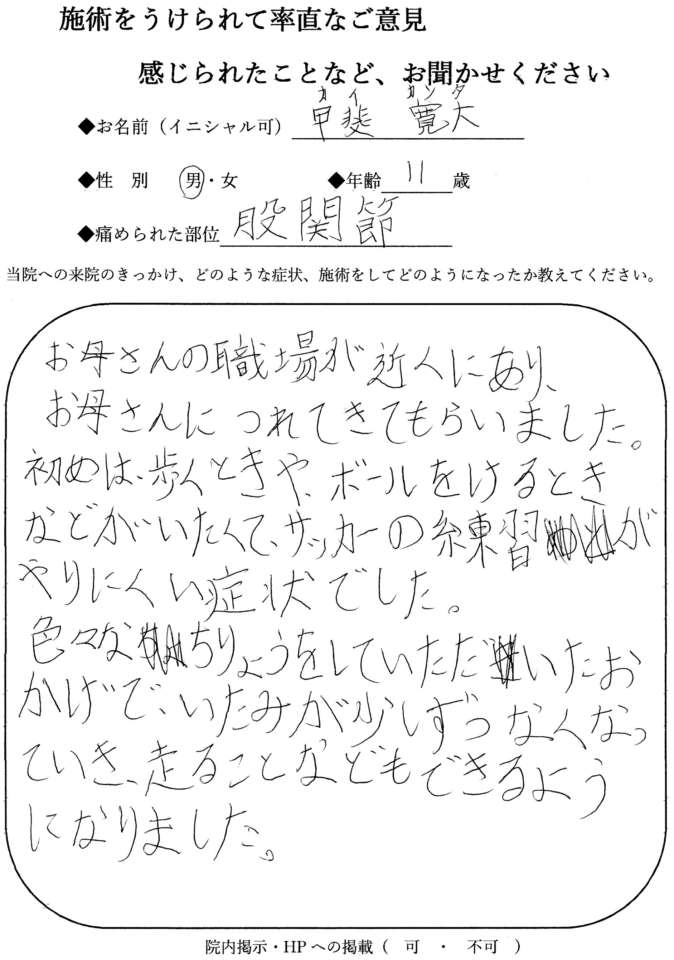 施術をうけられて率直なご意見
感じられたことなど、お聞かせください
カイ カンタ
◆お名前（イニシャル可） 甲斐 寛大
◆性 別 男・女 ◆年齢 11 歳
◆痛められた部位 股関節
当院への来院のきっかけ、どのような症状、施術をしてどのようになったか教えてください。
お母さんの職場が近くにあり、
お母さんにつれてきてもらいました。
初めは、歩くときや、ボールをけるとき
などがいたくて、サッカーの練習が
やりにくい症状でした。
色々なちりょうをしていただいたお
かげで、いたみが少しずつなくなっ
ていき、走ることなどもできるよう
になりました。
院内掲示・HPへの掲載（ 可 ・ 不可 ）